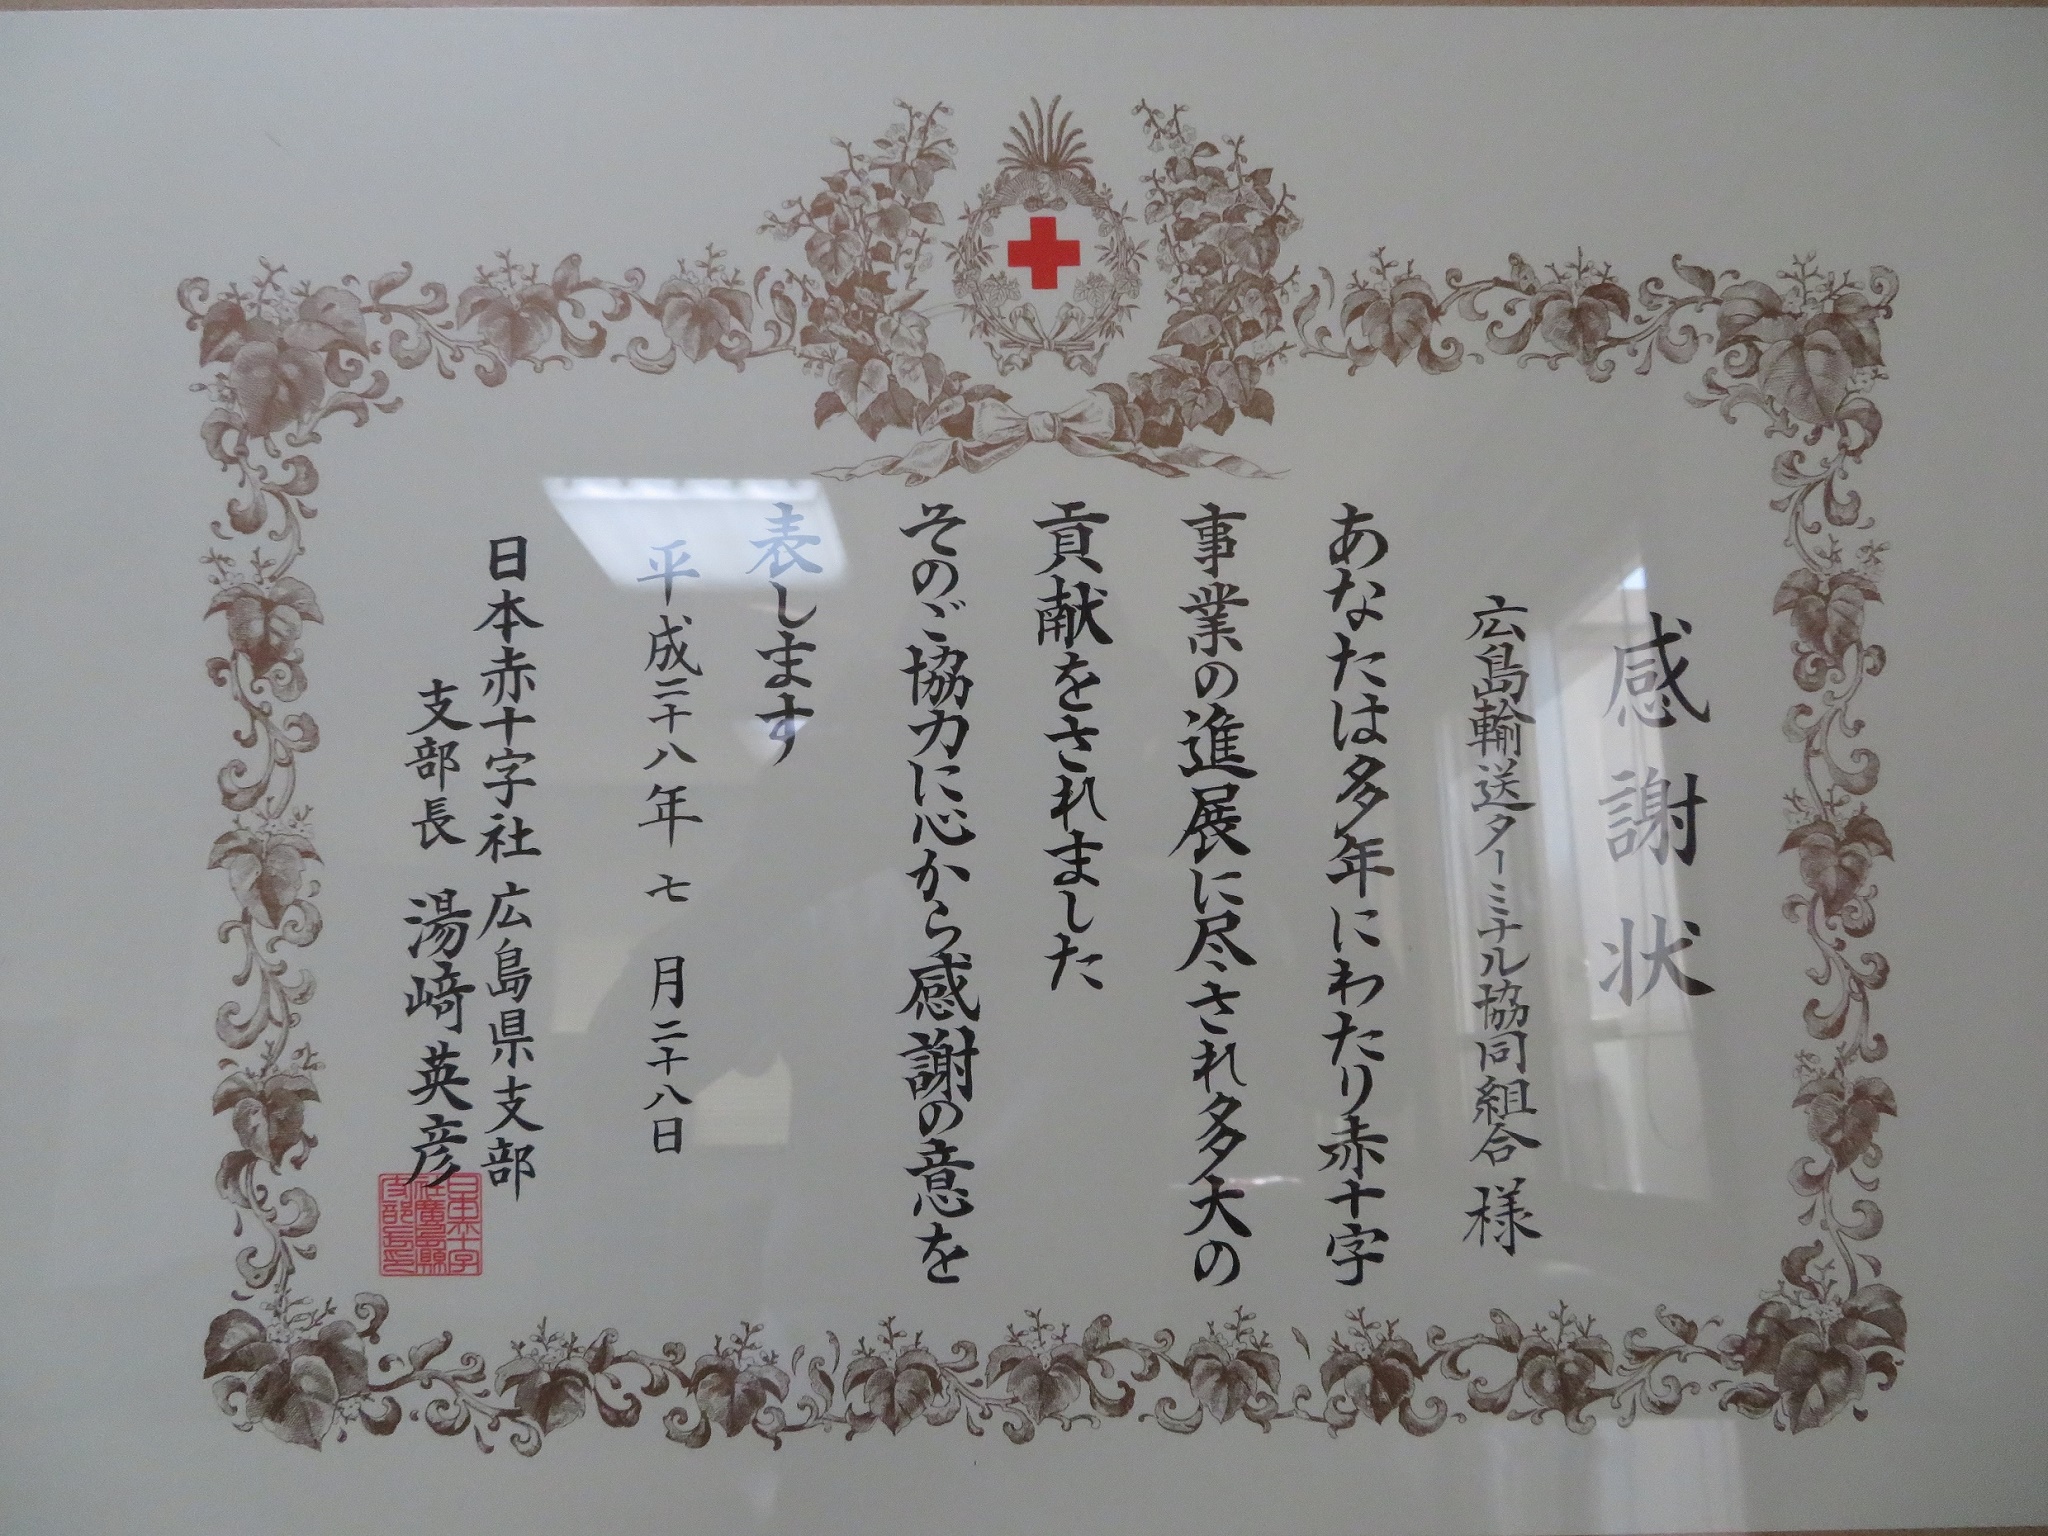 感謝状
広島輸送ターミナル協同組合 様
あなたは多年にわたり赤十字
事業の進展に尽され多大の
貢献をされました
そのご協力に心から感謝の意を
表します
平成二十八年 七 月二十八日
日本赤十字社 広島県支部
支部長 湯﨑英彦
日本赤十字
社廣島縣
支部長印